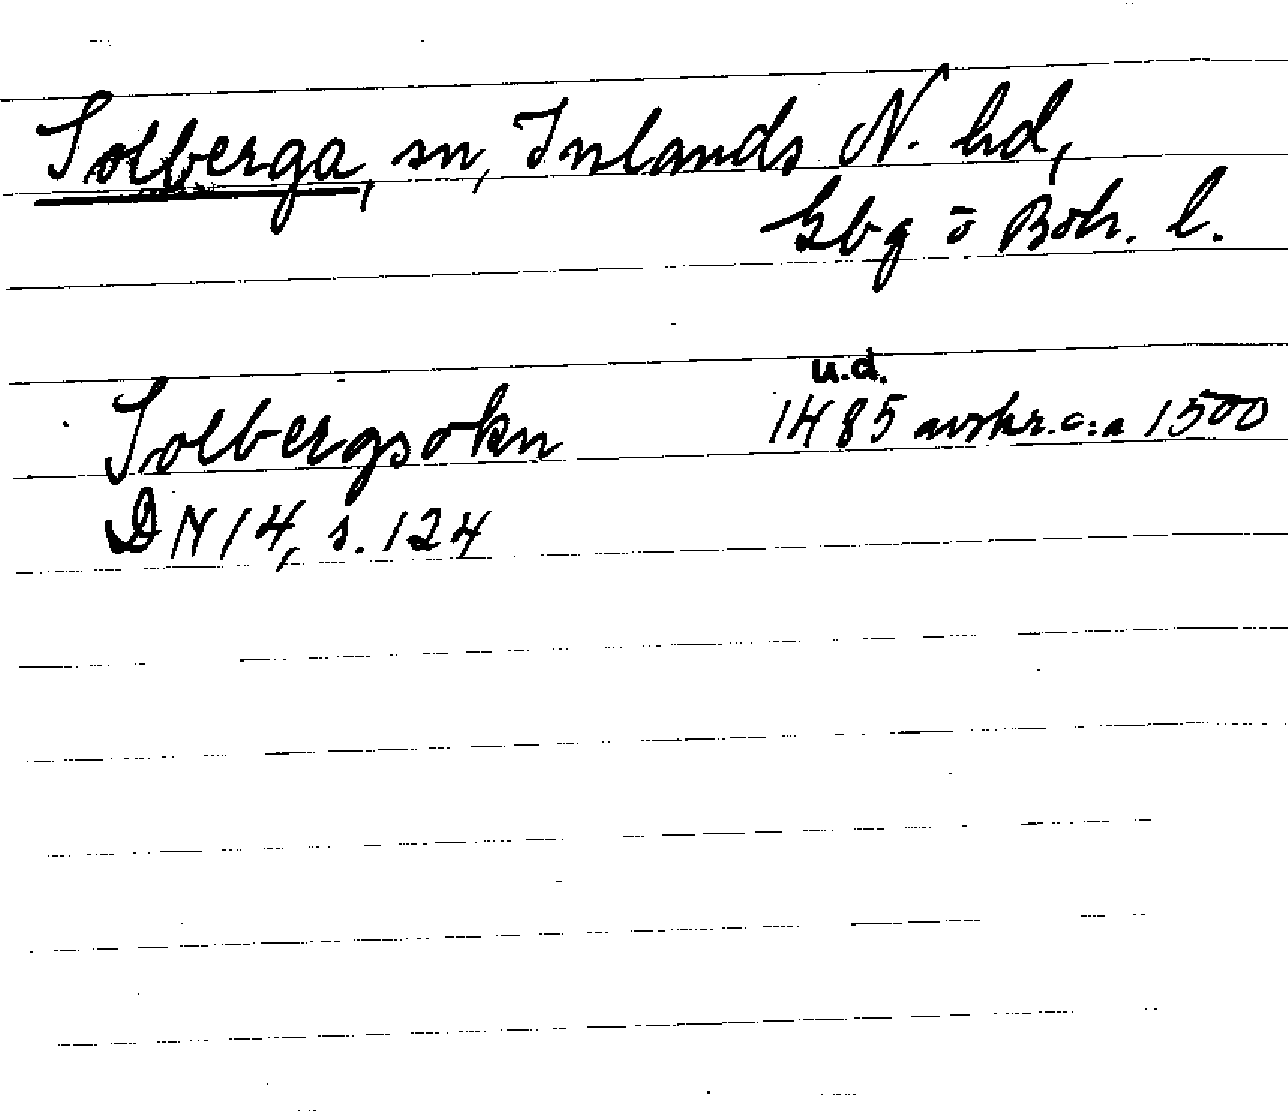 Solberga, sn, Inlands N. hd,
Gbg o Boh. l.
u.d.
Solbergsokn 1485 avskr. c:a 1500
DN 14, s. 124